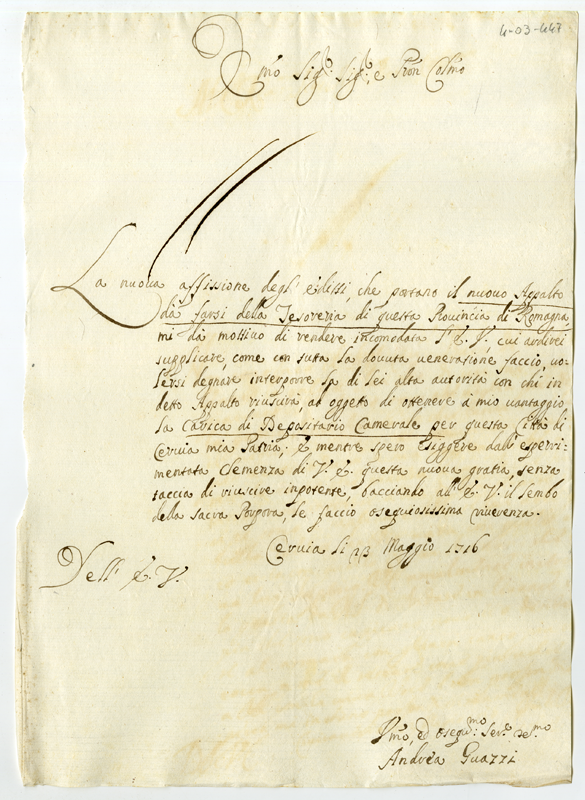 4-03-447
Emo Sigr: Sigr: e Pron Colmo
La nuova affissione degl' editti, che portano il nuovo Appalto
da farsi della Tesoreria di questa Provincia di Romagna,
mi dà mottivo di rendere incomodata l' E. V. cui ardirei
supplicare, come con tutta la dovuta veneratione faccio, vo-
lersi degnare interporre la di lei alta autorità con chi in
detto Appalto riuscirà, ad oggetto di ottenere à mio vantaggio
la Carica di Depositario Camerale per questa Città di
Cervia mia Patria. E mentre spero esiggere dall' esperri-
mentata Clemenza di V. E. questa nuova gratia, senza
taccia di riuscire inpotente, bacciando all' E. V. il lembo
della sacra Porpora, le faccio osequiosissima riverenza.
Cervia li 23 Maggio 1716
Dell' E. V.
Vmo, ed osequmo Serv:
Andrea Guazzi